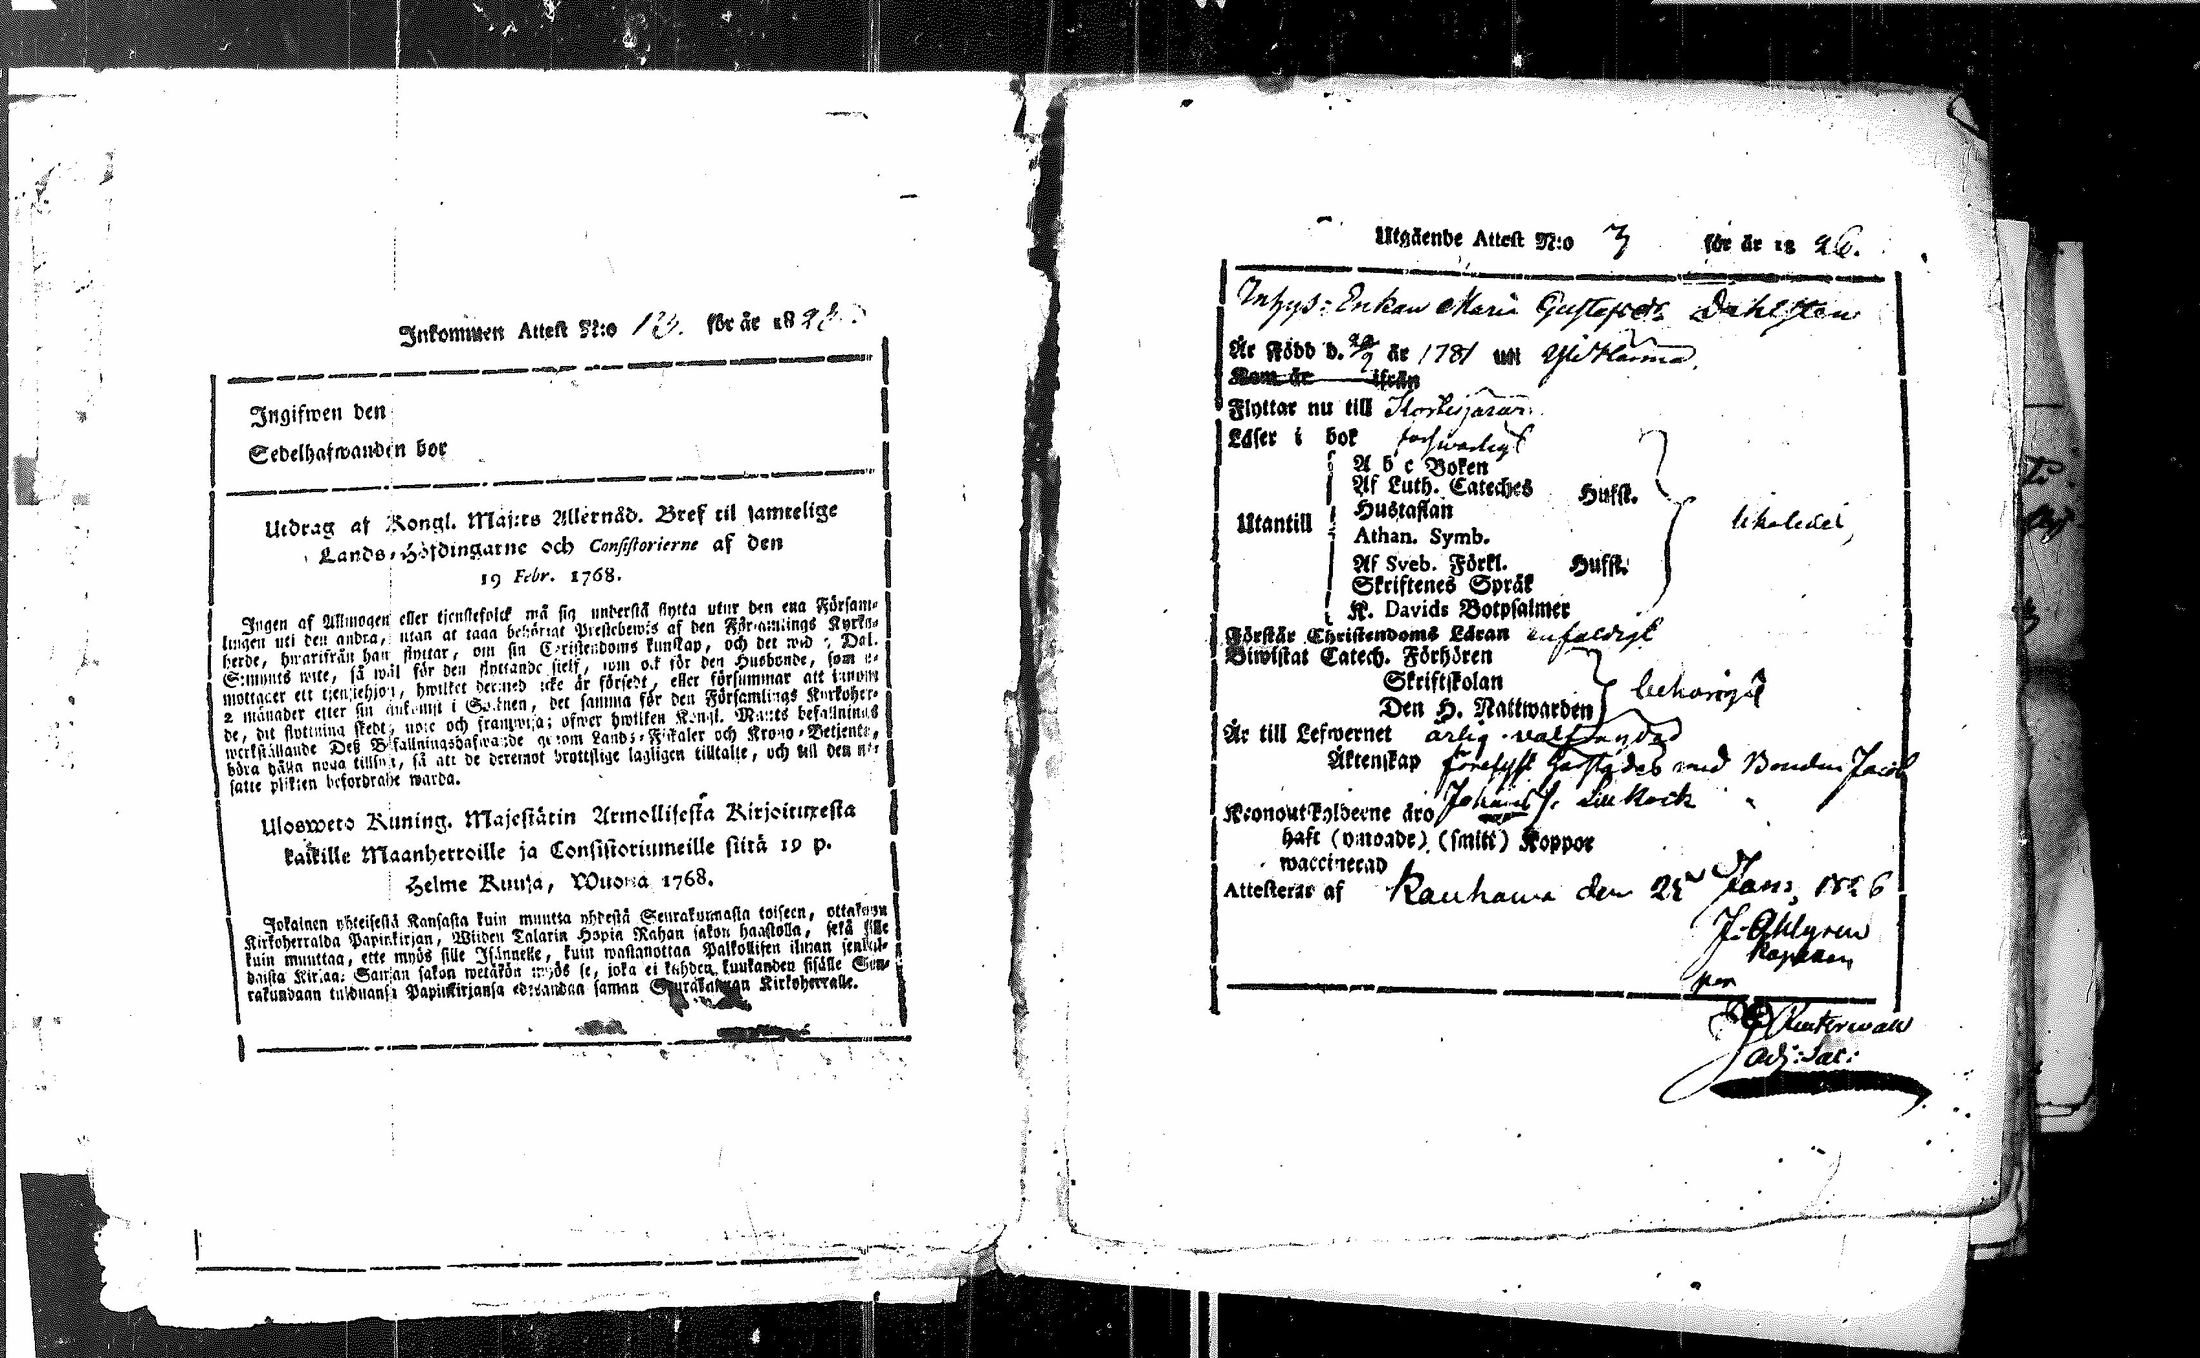 Inkommen Attest N:o 13. för år 182
Ingifwen den
Sedelhafwanden bor
Utdrag af Kongl. Maj:ts Allernåd. Bref til samtelige
Lands-Höfdingarne och Consistorierne af den
19 Febr. 1768.
Ingen af Allmogen eller tjenstefolck må sig understå flytta utur den ena Försam-
lingen uti den andra, utan at taga behörigt Prestebewis af den Församlings Kyrko-
herde, hwarifrån han flyttar, om sin Christendoms kunskap, och det wid 5 Dal.
S:mynts wite, så wäl för den flyttande sielf, som ock för den Husbonde, som e-
mottager ett tjenstehjon, hwilket dermed icke är försedt, eller försummar att innom
2 månader efter sin ankomst i Soknen, det samma för den Församlings Kyrkoher-
de, dit flyttning skedt, upte och framwisa; öfwer hwilken Kongl. Maj:ts befallnings
werkställande Deß Befallningshafwande genom Lands-Fiskaler och Krono-Betjente,
böra hålla noga tillsyn, så att de deremot brottslige lagligen tilltalte, och till den ut-
satte plikten befordrade warda.
Ulosweto Kuning. Majestätin Armollisesta Kirjoituxesta
kaikille Maanherroille ja Consistoriumeille siitä 19 p.
Helme Kuusa, Wuonna 1768.
Jokainen yhteisestä Kansasta kuin muutta yhdestä Seurakunnasta toiseen, ottakoon
Kirkoherralda Papinkirjan, Wiiden Talarin Hopia Rahan sakon haastolla, sekä sille
kuin muuttaa, ette myös sille Isännelle, kuin wastanottaa Palkollisen ilman senkal-
daista Kirjaa: Saman sakon wetäkön myös se, joka ei kahden kuukauden sisälle Seu-
rakundaan tulduansa Papinkirjansa edesandaa saman Seurakunnan Kirkoherralle.
Utgående Attest N:o 3 för år 1826.
Inhys: Enkan Maria Gustafsdr Dahlsten
Är Född d. 22/9 år 1781 uti Yli Härmä,
Kom år ifrån
Flyttar nu till Kortesjärvi
Läser i bok försvarligt
A b c Boken
Af Luth. Cateches Hufst.
Hustaflan
Utantill
likaledes,
Athan. Symb.
Af Sveb. Förkl. Hufst.
Skriftenes Språk
K. Davids Botpsalmer
Förstår Christendoms Läran enfaldigt
Biwistat Catech. Förhören
Skriftskolan
behörigt
Den H. Nattwarden
Är till Lefwernet ärlig
Äktenskap med Bonden Jacob
Kronoutskylderne äro
haft (ympade) (smitt) Koppor
waccinerad
Attesterar af Kauhawa den Jan: 1826
J: Ahlgren
Kapellan
per
adj: Sac: